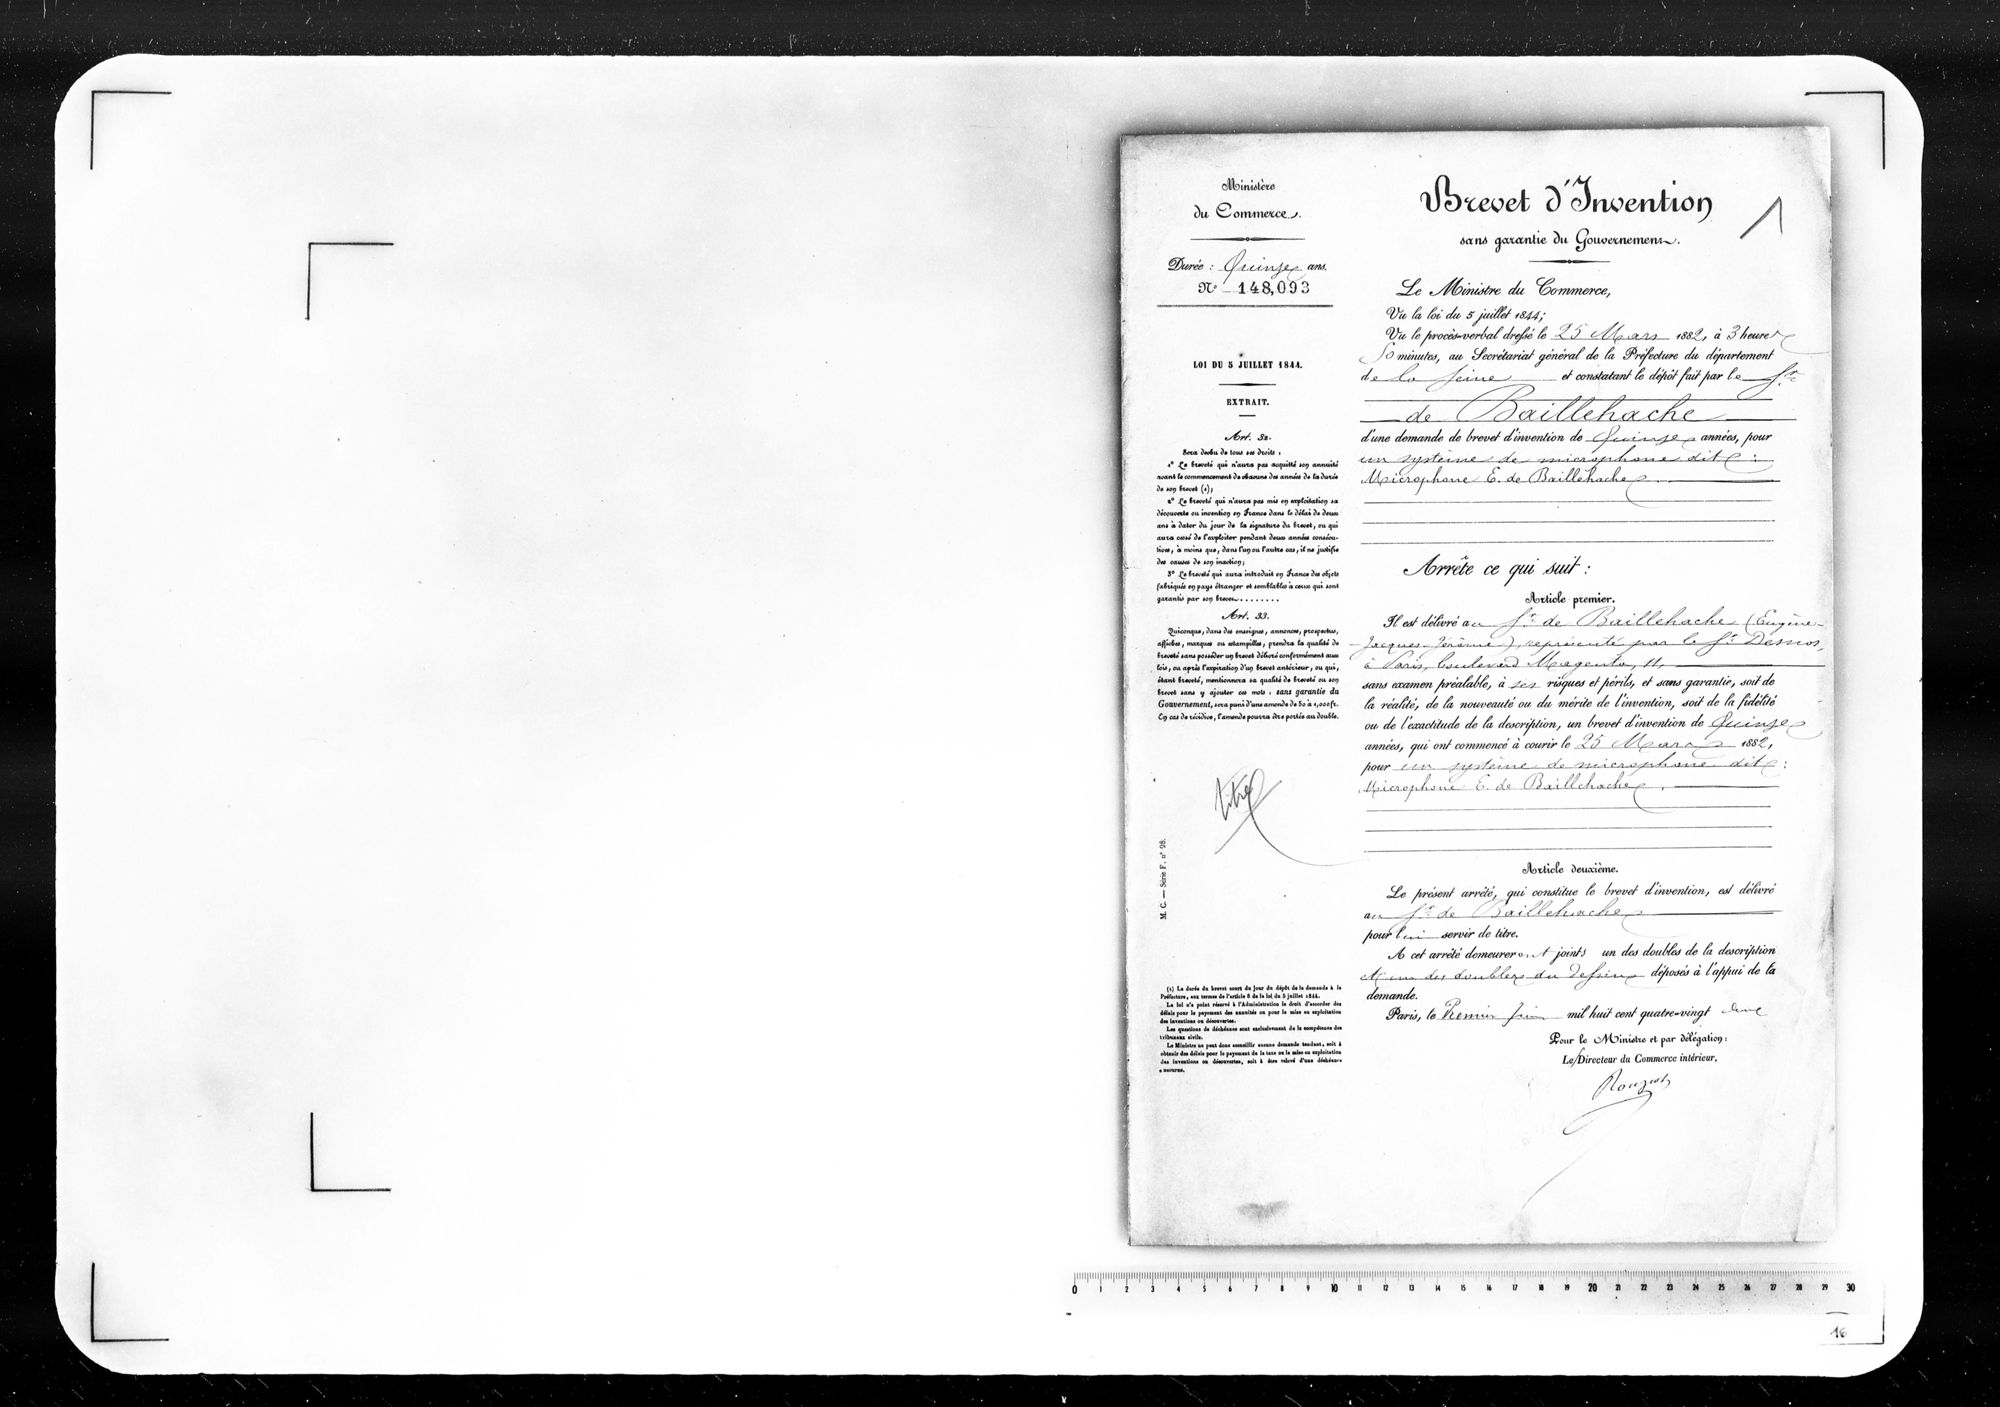 Ministère
du Commerce.
Durée : Quinze ans.
N° 148,093
LOI DU 5 JUILLET 1844.
EXTRAIT.
Art. 32.
Sera déchu de tous ses droits :
1° Le breveté qui n'aura pas acquitté son annuité
avant le commencement de chacune des années de la durée
de son brevet (1);
2° Le breveté qui n'aura pas mis en exploitation sa
découverte ou invention en France dans le délai de deux
ans à dater du jour de la signature du brevet, ou qui
aura cessé de l'exploiter pendant deux années consécu-
tives, à moins que, dans l'un ou l'autre cas, il ne justifie
des causes de son inaction;
3° Le breveté qui aura introduit en France des objets
fabriqués en pays étranger et semblables à ceux qui sont
garantis par son brevet........
Art. 33.
Quiconque, dans des enseignes, annonces, prospectus,
affiches, marques ou estampilles, prendra la qualité de
breveté sans posséder un brevet délivré conformément aux
lois, ou après l'expiration d'un brevet antérieur, ou qui,
étant breveté, mentionnera sa qualité de breveté ou son
brevet sans y ajouter ces mots : sans garantie du
Gouvernement, sera puni d'une amende de 50 à 1,000 fr.
En cas de récidive, l'amende pourra être portée au double.
titre
M. C. — Série F, n° 98.
(1) La durée du brevet court du jour du dépôt de la demande à la
Préfecture, aux termes de l'article 8 de la loi du 5 juillet 1844.
La loi n'a point réservé à l'Administration le droit d'accorder des
délais pour le payement des annuités ou pour la mise en exploitation
des inventions ou découvertes.
Les questions de déchéance sont exclusivement de la compétence des
tribunaux civils.
Le Ministre ne peut donc accueillir aucune demande tendant, soit à
obtenir des délais pour le payement de la taxe ou la mise en exploitation
des inventions ou découvertes, soit à être relevé d'une déchéance
encourue.
Brevet d'Invention
1
sans garantie du Gouvernement.
Le Ministre du Commerce,
Vu la loi du 5 juillet 1844;
Vu le procès-verbal dressé le 25 Mars 1882, à 3 heures
50 minutes, au Secrétariat général de la Préfecture du département
de la Seine et constatant le dépôt fait par le Sr
de Baillehache
d'une demande de brevet d'invention de Quinze années, pour
un système de microphone dit :
Microphone E. de Baillehache.
Arrête ce qui suit :
Article premier.
Il est délivré au Sr de Baillehache (Eugène-
Jacques-Jérôme), représenté par le Sr Desnos,
à Paris, boulevard Magenta, 11,
sans examen préalable, à ses risques et périls, et sans garantie, soit de
la réalité, de la nouveauté ou du mérite de l'invention, soit de la fidélité
ou de l'exactitude de la description, un brevet d'invention de Quinze
années, qui ont commencé à courir le 25 Mars 1882,
pour un système de microphone dit :
Microphone E. de Baillehache.
Article deuxième.
Le présent arrêté, qui constitue le brevet d'invention, est délivré
au Sr de Baillehache
pour lui servir de titre.
A cet arrêté demeureront joints un des doubles de la description
et un des doubles du dessin déposés à l'appui de la
demande.
Paris, le Premier Juin mil huit cent quatre-vingt deux
Pour le Ministre et par délégation :
Le Directeur du Commerce intérieur,
0 1 2 3 4 5 6 7 8 9 10 11 12 13 14 15 16 17 18 19 20 21 22 23 24 25 26 27 28 29 30
16